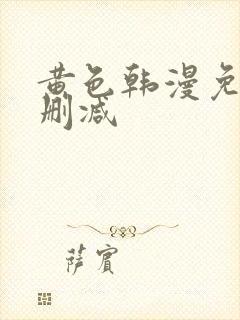 黄色韩漫免
删减
萨宾